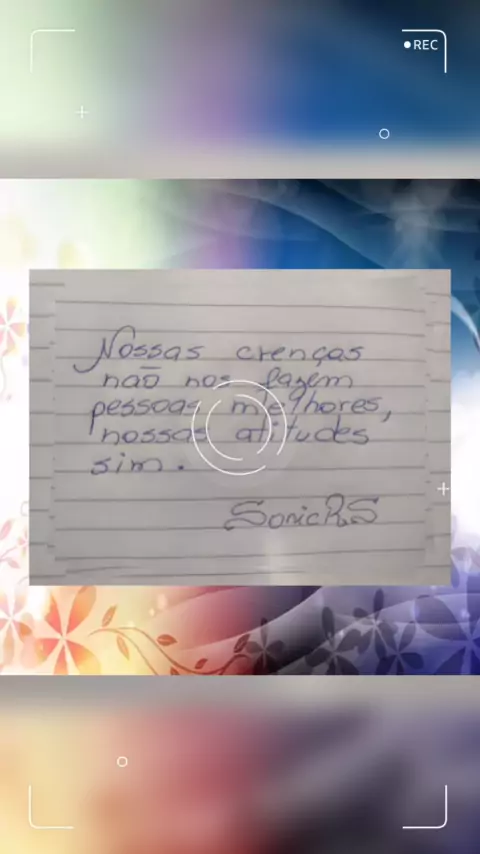 REC
Nossas crenças
não nos fazem
pessoas melhores,
nossas atitudes
sim.
SonicRS